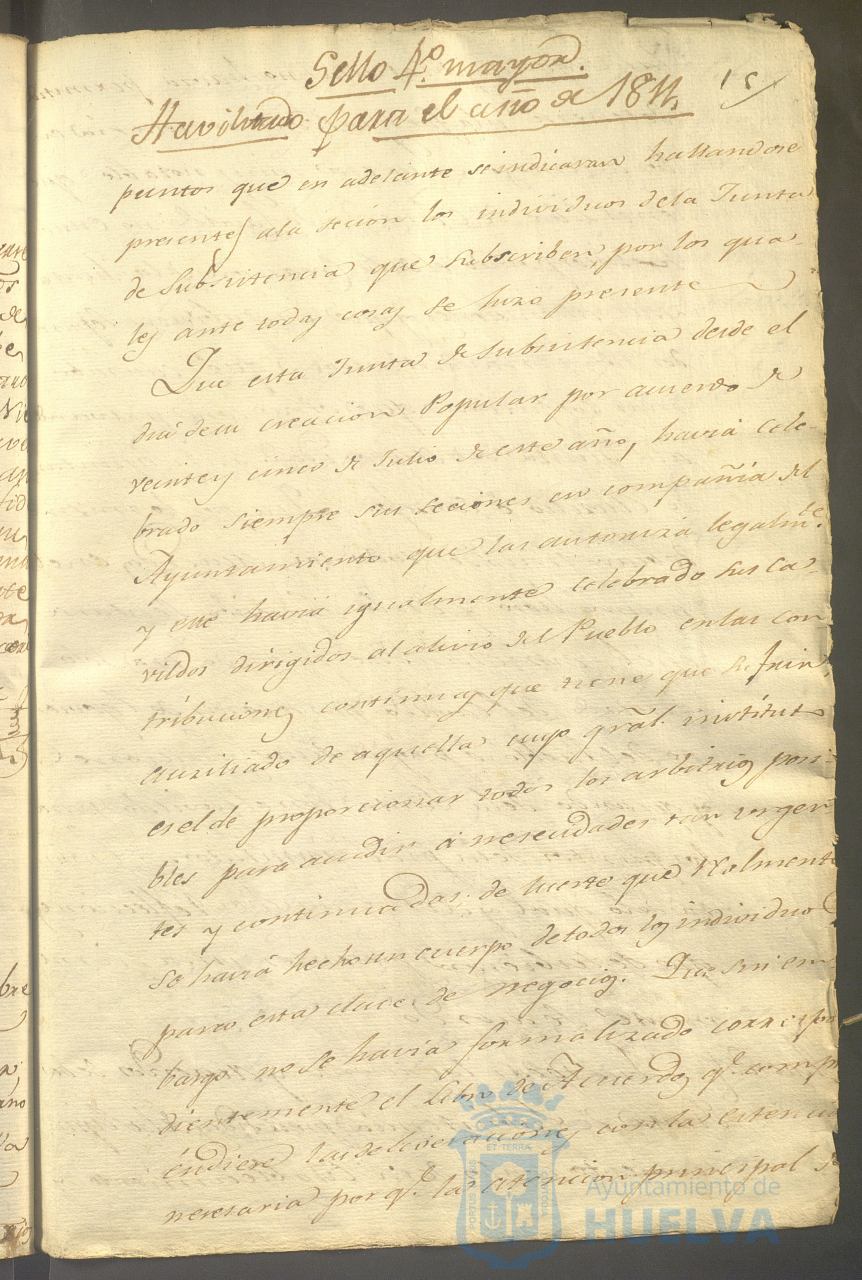 Sello 4º mayor.
Havilitado para el año de 1811,
15
puntos que en adelante se indicaran hallandose
presentes ala seción los individuos dela Junta
de Subsistencia que subscriben, por los qua-
les ante todas cosas se hizo presente
Que esta Junta de Subsistencia desde el
dia de su creacion Popular por acuerdo de
veinte y cinco de Julio de este año, havia cele-
brado siempre sus seciones en compañia del
Ayuntamiento que las autoriza legalmte.
y este havia igualmente celebrado sus Ca-
vildos dirigidos al alivio del Pueblo en las con
tribuciones continuas que tiene que sufrir
auxiliado de aquella cuyo gral. instituto
es el de proporcionar todos los arbitrios posi-
bles para acudir a necesidades tan urgen
tes y continuadas: de suerte que realmente
se havia hecho un cuerpo de todos los individuos
para esta clase de negocios. Que sin em
bargo no se havia formalizado correspon
dientemente el Libro de Acuerdos qe. compr
endiese las deliveraciones con la estencion
necesaria por qe. la atencion principal de
Ayuntamiento de
HUELVA